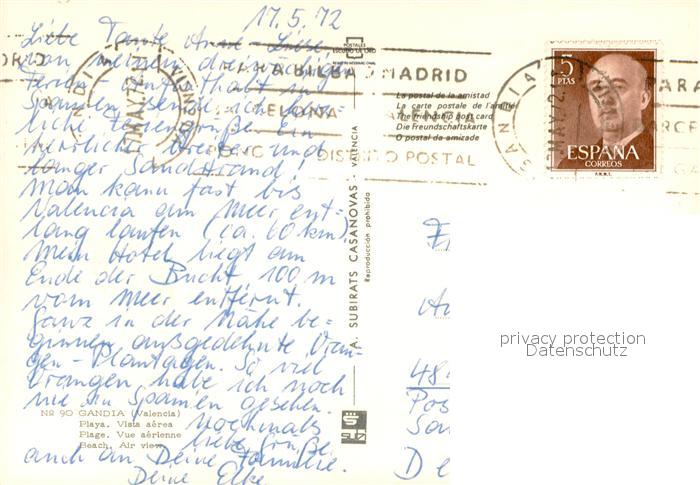 17.5.72
Liebe Tante Anne Liese,
von meinem dreiwöchigen
Ferienaufenthalt in
Spanien sende ich herz-
liche Feriengrüße. Ein
herrlicher breiter und
langer Sandstrand!
Man kann fast bis
Valencia am Meer ent-
lang laufen (ca. 60 km)
Mein Hotel liegt am
Ende der Bucht, 100 m
vom Meer entfernt.
Ganz in der Nähe be-
ginnen ausgedehnte Oran-
gen-Plantagen. So viel
Orangen habe ich noch
nie in Spanien gesehen.
Nochmals
liebe Grüße
auch an Deine Familie.
Deine Elke
Nº 90 GANDIA (Valencia)
Playa. Vista aérea
Plage. Vue aérienne
Beach. Air view
A. SUBIRATS CASANOVAS - VALENCIA
Reproducción prohibida
POSTALES
ESCUDO DE ORO
La postal de la amistad
La carte postale de l'amitié
The friendship post card
Die Freundschaftskarte
O postal da amizade
MADRID
DISTRITO POSTAL
5
PTAS
ESPAÑA
CORREOS
F.N.M.T.
48
Pos
D e
privacy protection
Datenschutz